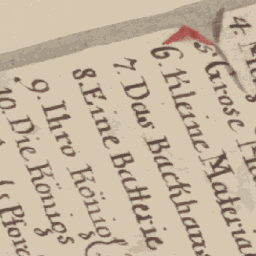 4.
5. Grose
6. Kleine Materia
7. Das Backhaus
8. Eine Batterie
9. Ihro Königl
10. Die Königs